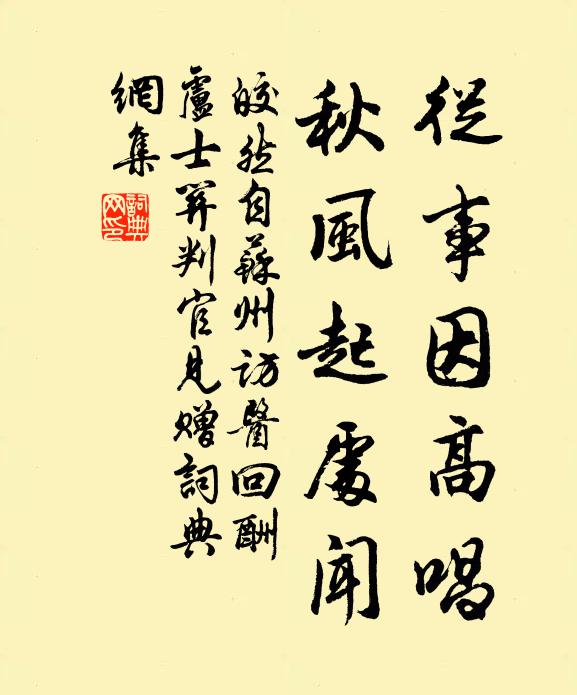 從事因高唱
秋風起處聞
皎然自蘇州訪醫回酬
盧士關判官見贈詞典
網集
詞典网印